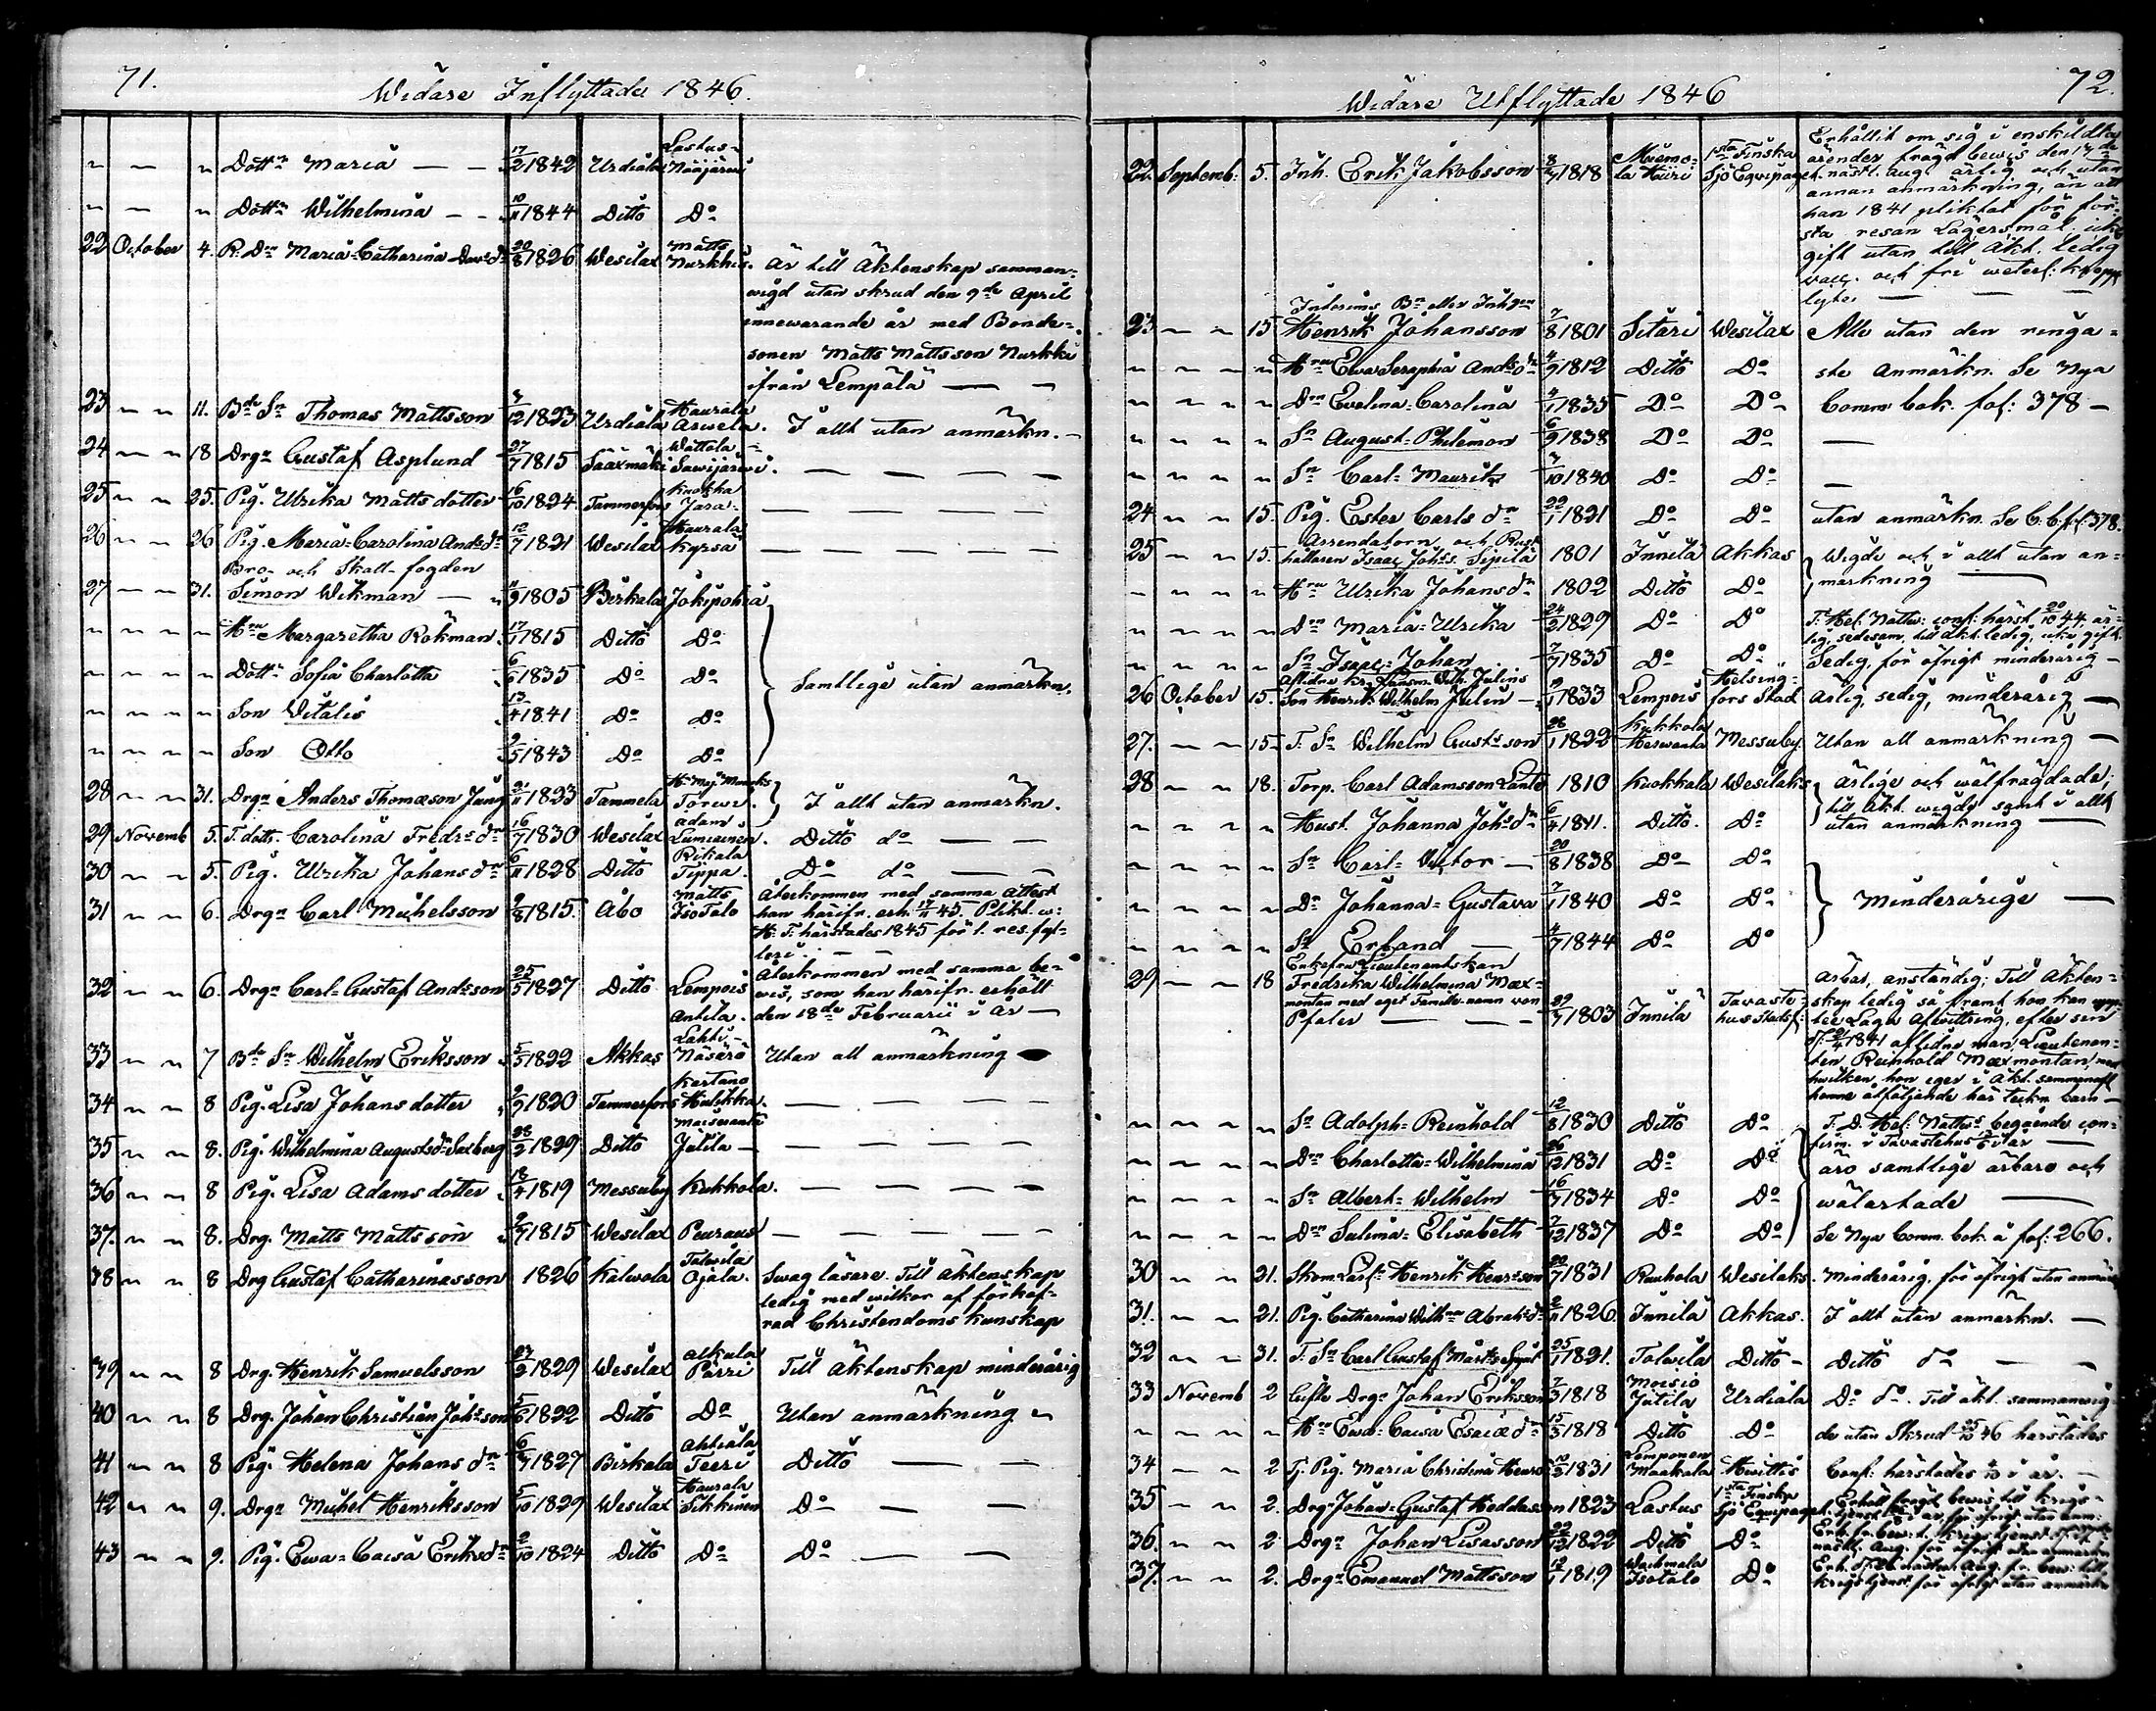 71.
Widare Inflyttade 1846.
" — " Dottn Maria — — 17/2 1842 Urdiala Lastus- Näijärvi
" — " Dottn Wilhelmina — — 10/11 1844 Ditto Do
22 October 4. P. Dn Maria-Catharina Davsdr 20/8 1826 Wesilax Matts Nurkhis. Är till Äktenskap samman-
wigd utan skrud den 9de April
innewarande år med Bonde-
sonen Matts Mattsson Nurkki
ifrån Lempälä — —
23 " " 11. Bde Sn Thomas Mattsson /12 1823 Urdiala Haurala Arwela. I allt utan anmärkn. —
24 " " 18 Drgn Gustaf Asplund 27/7 1815 Sääxmäki Wattola- Sawijärwi. — — — —
25 " " 25. Pig. Ulrika Mattsdotter 16/10 1824 Tammerfors Kuokka Jara. — — — —
26 " " 26 Pig. Maria-Carolina Andsdr 12/7 1821 Wesilax Haurala Kyrsä — — — —
Bro- och Skall-fogden
27 " " 31. Simon Wikman — " 11/9 1805 Birkala Jokipohia
" " " " Hn Margaretha Rökman 17/1 1815 Ditto Do
" " " " Dottn Sofia Charlotta 6/ 1835 Do Do Samtlige utan anmärkn.
" " " " Son Vitalis 13/4 1841 Do Do
" " " " Son Otto 9/5 1843 Do Do
28 " " 31. Drgn Anders Thomæson Jung 21/11 1823 Tammela Torwi. I allt utan anmärkn.
29 Novemb 5. T. dottr. Carolina Fredrsdr 16/7 1830 Wesilax Adams Lumiainen. Ditto do — —
30 " " 5. Pig. Ulrika Johansdr 6/11 1828 Ditto Rikala Tippa. Do do — —
31 " " 6. Drgn Carl Michelsson 9/8 1815. Åbo Matts IsoTalo Återkommen med samma Attest
han härifr. erh. 17/11 45. Plikt. w.
H. T. härstades 1845 för 1. res. fyl-
leri. — —
32 " " 6. Drgn Carl-Gustaf Andsson 25/5 1827 Ditto Lempois Antila. Återkommen med samma be-
wis, som han härifr. erhölt
den 18de Februarii i år —
33 " " 7 Bde Sn Wilhelm Eriksson 5/5 1822 Akkas Lahti- Näsärö Utan all anmärkning
34 " " 8 Pig. Lisa Johansdotter 2/9 1820 Tammerfors Kartano Hulikka. — — — —
35 " " 8. Pig. Wilhelmina Augustsdr Saxberg 28/2 1829 Ditto Jutila — — — — —
36 " " 8 Pig. Lisa Adamsdotter 18/4 1819 Messuby Kukkola. — — — —
37. " " 8. Drg. Matts Mattsson 9/7 1815 Wesilax Peuraus — — — —
38 " " 8 Drg Gustaf Catharinasson 1826 Kalwola Talwila Ojala. Swag läsare. Till Äktenskap
ledig med wilkor af förkof-
rad Christendoms kunskap
39 " " 8 Drg. Henrik Samuelsson 27/2 1829 Wesilax Alkula Pärri Till Äktenskap minderårig
40 " " 8 Drg. Johan Christian Johsson 5/6 1822 Ditto Do Utan anmärkning "
41 " " 8 Pig. Helena Johansdr 6/7 1827 Birkala Ahtiala Teeri Ditto — —
42 " " 9. Drgn Michel Henriksson 5/10 1829 Wesilax Haurala Sikkinen Do — —
43 " " 9. Pig. Ewa-Caisa Eriksdr 2/10 1824 Ditto Do Do — —
72.
Widare Utflyttade 1846
22. Septemb: 5. Inh. Erik Jakobsson 8/7 1818 1sta Finska Sjö Eqvipaget. Erhållit om sig i enskildta
ärender frägd bewis den 17de
näst. Aug. ärlig och utan
annan anmärkning, än att
han 1841 pliktat för för-
sta resan Lägersmål; icke
gift utan till äkt. ledig
vacc. och fri weterl: kropp
lyte. — — —
Interims Bn eller Inhgen
23 — " 15 Henrik Johansson 7/8 1801 Sitari Wesilax Alle utan den ringa-
" " " " Hrn Ewa Seraphia Andsdr 4/9 1812 Ditto Do ste anmärkn. Se Nya
" " " " Dn Evelina-Carolina 4/1 1835 Do Do Comm bok. fol: 378 —
" " " " Sn August-Philemon 6/9 1838 Do Do —
" " " " Sn Carl-Mauritz 7/10 1840 Do Do —
24 — " 15. Pig. Ester Carlsdr 22/1 1821 Do Do utan anmärkn. Se C. b. f. 378.
Arrendatorn och Rust
25 — " 15. hållaren Isaac Johs. Sipilä 1801 Innilä Akkas Wigde och i allt utan an-
" " " " Hrn Ulrika Johansdr 1802 Ditto Do märkning —
" " " " Dn Maria-Ulrika 24/2 1829 Do Do T. Hel. Nattw: conf: härst. 20/10 44. är-
lig, sedesam, till äkt. ledig, icke gift.
" " " " Sn Isaac-Johan 7/7 1835 Do Do Sedig, för öfrigt minderårig —
Aflidne Kr. Länsm. Wilh. Julins
26 October 15. Son Henrik Wilhelm Julin — /1 1833 Lempois Helsing- fors Stad Ärlig, sedig, minderårig —
27. — " 15. T. Sn Wilhelm Gustsson 28/1 1822 Kukkola Messuby. Utan all anmärkning —
28 — " 18. Torp. Carl Adamsson Lanto 1810 Kuokkala Wesilaks Ärlige och wälfrägdade;
till äkt. wigde samt i allt
" " " " Hust. Johanna Johsdr 6/4 1811. Ditto. Do utan anmärkning —
" " " " Sn Carl-Victor — 20/8 1838 Do Do
" " " " Dr Johanna-Gustava 7/1 1840 Do Do Minderårige —
" " " " Sn Erland — 4/7 1844 Do Do
Enkefru Lieutenantskan
29 — " 18 Fredrika Wilhelmina Mæx-
montan med eget Famille-namn von
Pfaler — — 29/7 1803 Innilä Tavaste- hus Stadsf: Ärbar, anständig; Till Äkten-
skap ledig så framt hon kan upp-
tee Laga Afwittring, efter sin
d. 20/4 1841 aflidne man, Lieutenan-
ten Reinhold Mæxmontan, med
hwilken hon eger i äkt. sammanafl.
henne åtföljande här teckn. barn —
" " " " Sn Adolph-Reinhold 12/8 1830 Ditto Do T. D. Hel. Nattwd begående con-
firm. i Tavastehus i år —
" " " " Dn Charlotta-Wilhelmina 26/12 1831 Do Do äro samtlige ärbare och
" " " " Sn Albert-Wilhelm 16/7 1834 Do Do wälartade —
" " " " Dn Sulima-Elisabeth 7/12 1837 Do Do Se Nya Comm. bok. å fol: 266.
30 " " 21. Skom.Lärl. Henrik Henrsson 20/7 1831 Ruuhola Wesilaks. Minderårig. för öfrigt utan anmärk
31. " " 21. Pig. Catharina Wilhna Abrahdr 2/11 1826. Innilä Akkas. I allt utan anmärkn. —
32 — " 31. T. Sn Carl Gustaf 25/1 1821. Talwila Ditto — Ditto do — —
33 Novemb 2 Gifte Drgn Johan Eriksson 7/3 1818 Moisio Jutila Urdiala Do do. Till äkt. sammanwig-
" " " " Hrn Ewa-Caisa Esaiædr 15/3 1818 Ditto Do de utan Skrud 25/10 46 härstädes
34 — " 2 Tj. Pig. Maria Christina Henrs 10/3 1831 Lemponen Maakala Hwittis Conf: härstades i år. —
35 — " 2. Drgn Johan-Gustaf Heddasson 1823 Lastus 1sta Finska Sjö Equipaget. Erhöll frägd bewis till krigs-
tjenst i år, för öfrigt utan anm.
36. " " 2 Drgn Johan Lisasson 22/12 1822 Ditto Do
nästl. Aug. för öfrigt utan anmärkn
37. " " 2. Drgn Emanuel Mattsson 12/1 1819 Wachmala Isotalo Do
krigstjenst. för öfrigt utan anmärkn